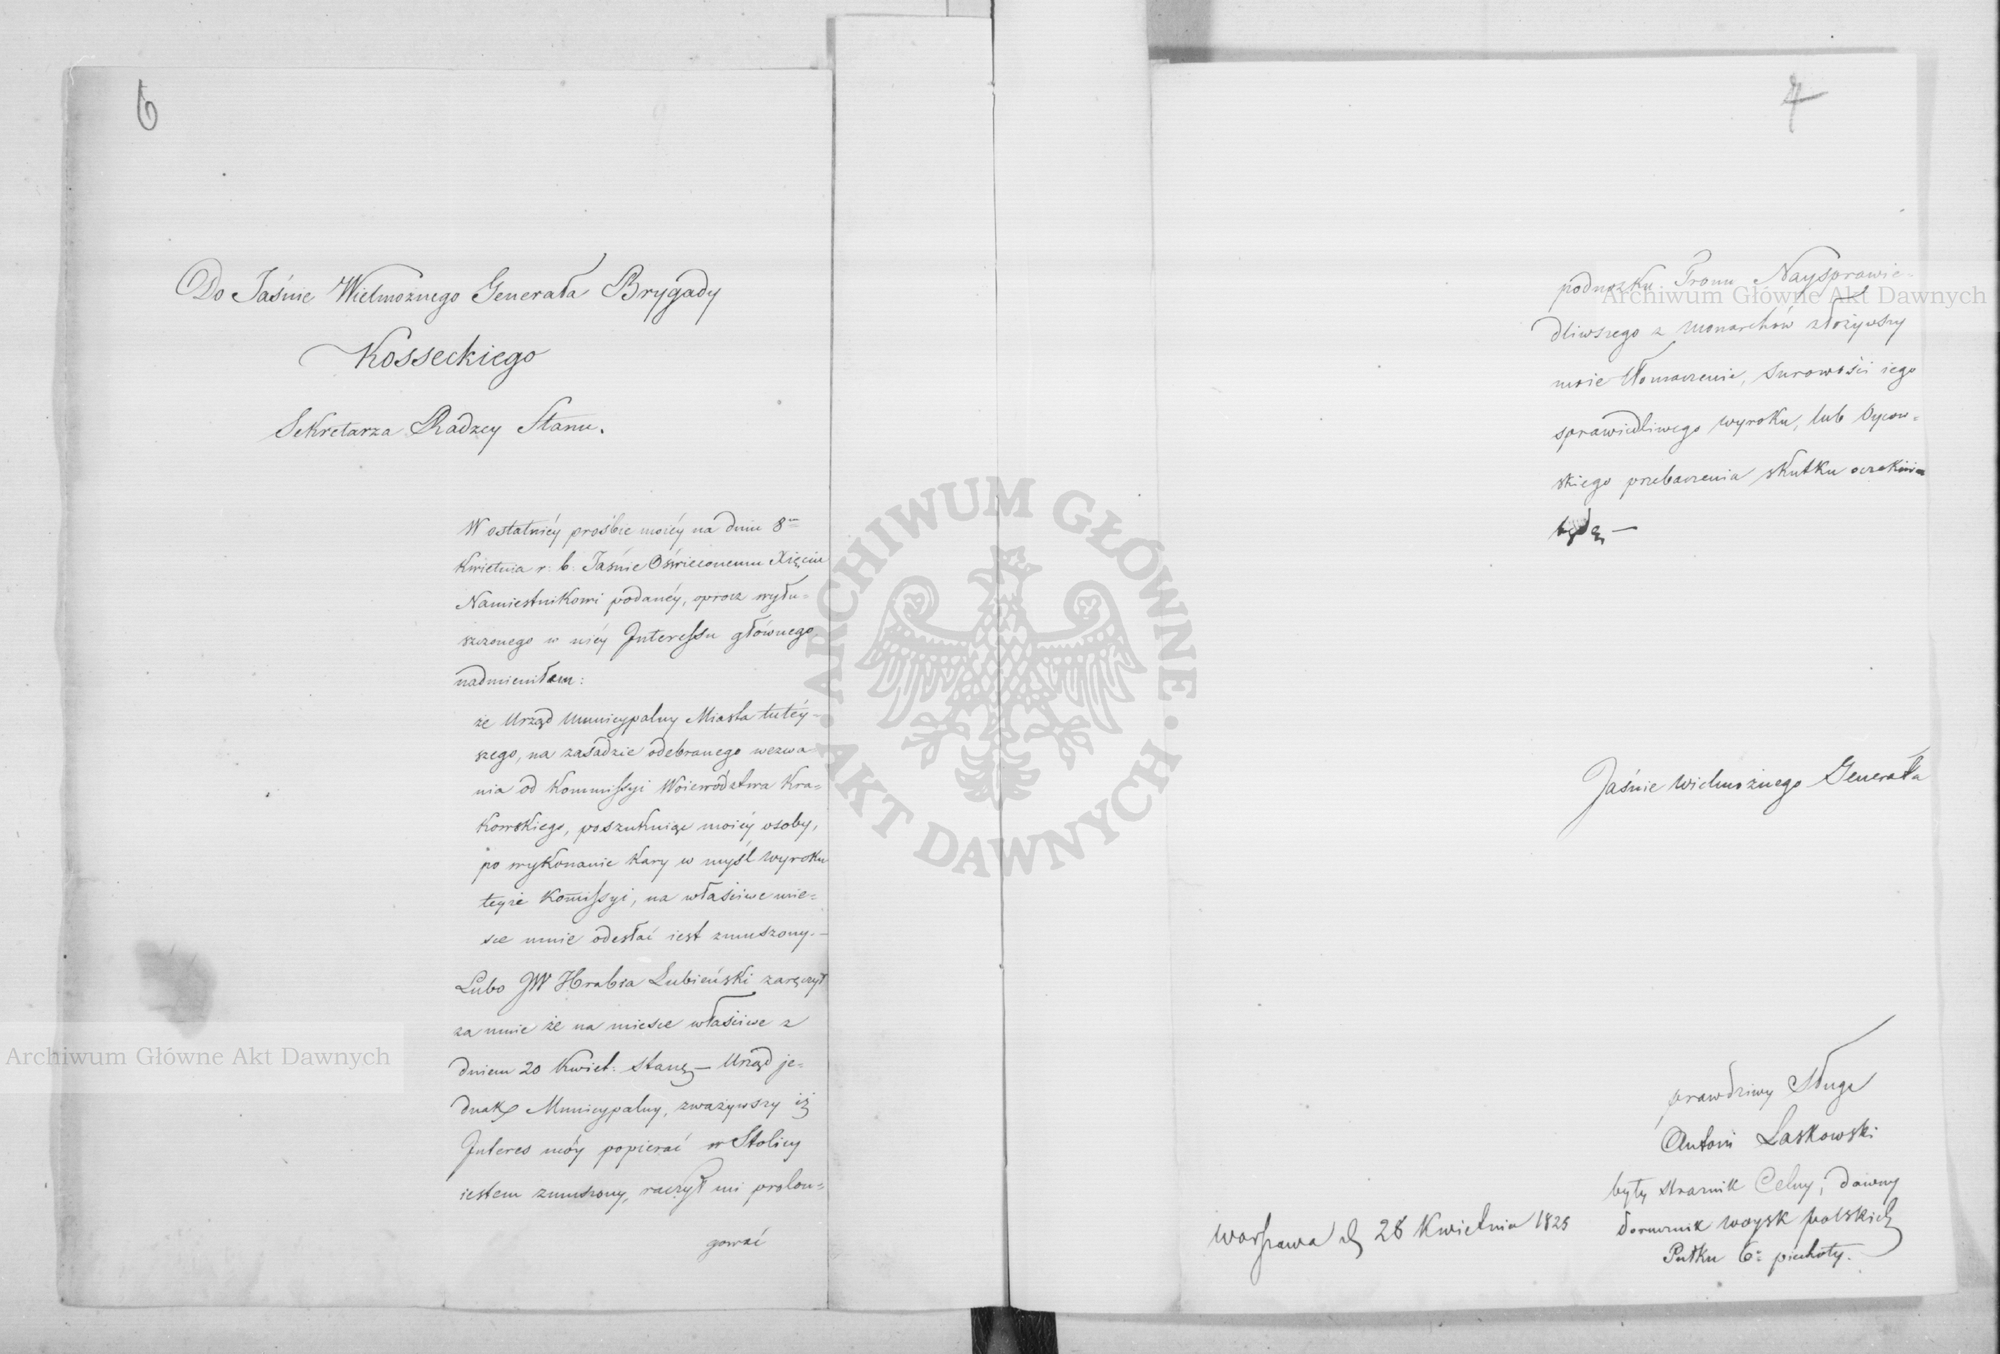 6
Do Jaśnie Wielmożnego Generała Brygady
Kosseckiego
Sekretarza Radzcy Stanu.
W ostatniéy prośbie moiéy na dniu 8
Kwietnia r. b. Jaśnie Oświeconemu Xięciu
Namiestnikowi podanéy, oprocz wyłu=
szczonego w niéy Interessu głównego,
nadmieniłem:
że Urząd Municypalny Miasta tutéy-
szego, na zasadzie odebranego wezwa
nia od Kommissyi Woiewództwa Kra=
kowskiego, poszukuiąc moiéy osoby,
po wykonanie kary w myśl wyroku
teyże Komissyi, na właściwe mie=
sce mnie odesłać iest zmuszony.—
Lubo JW Hrabia Łubieński zaręczył
za mnie że na miesce właściwe z
dniem 20 Kwiet: stanę — Urząd je=
dnak Municypalny, zważywszy iż
Interes móy popierać w Stolicy
iestem zmuszony, raczył mi prolon=
gować
7
podnożku Tronu Naysprawie-
dliwszego z Monarchów złożywszy
moie tłomaczenie, surowości iego
sprawiedliwego wyroku, lub Oycow=
skiego przebaczenia skutku oczekiwać
będę —
Jaśnie Wielmożnego Generała
prawdziwy Sługa
Antoni Laskowski
były strażnik Celny, dawny
Porucznik woysk polskich
Pułku 6 piechoty.
Warszawa d 28 Kwietnia 1825
ARCHIWUM GŁÓWNE AKT DAWNYCH
Archiwum Główne Akt Dawnych
Archiwum Główne Akt Dawnych